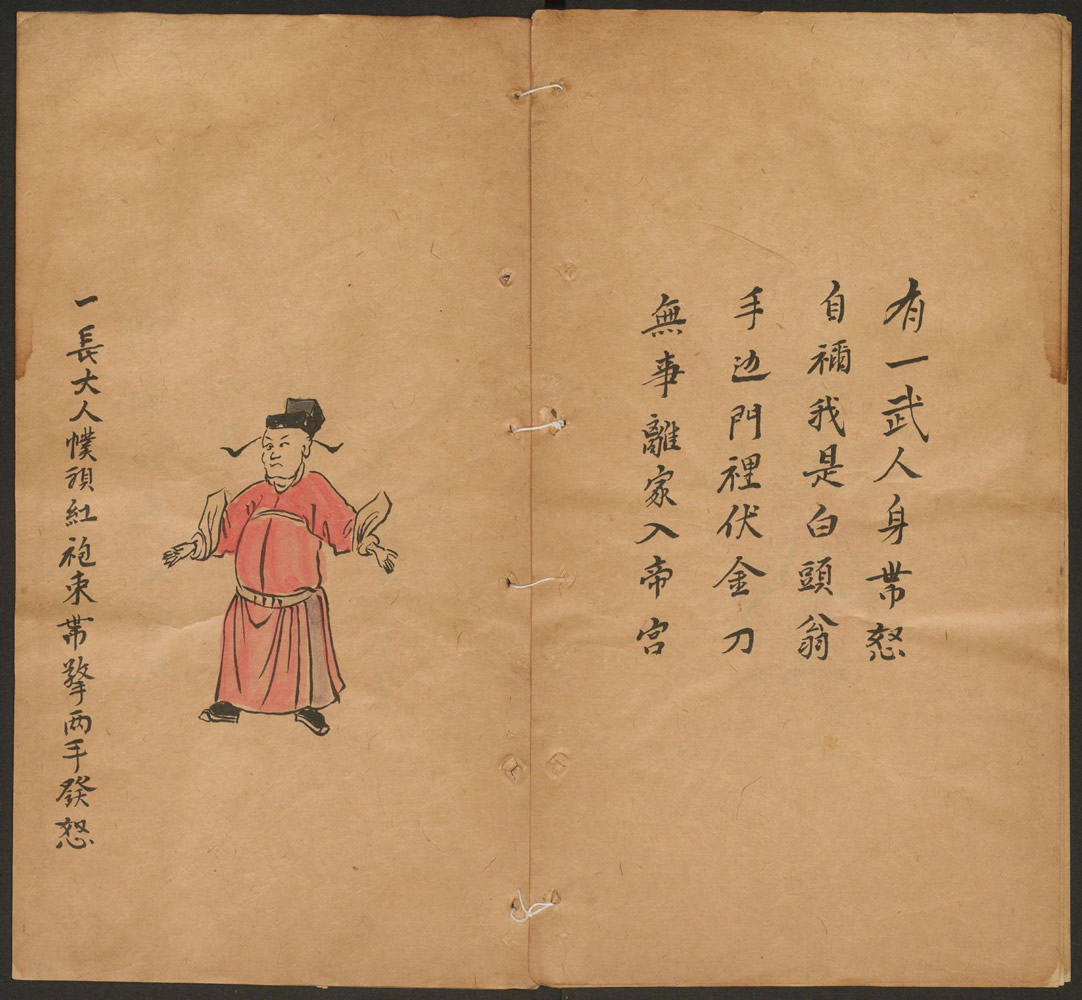 有一武人身帶怒
自禰我是白頭翁
手边門裡伏金刀
無事離家入帝宮
一長大人幞頭紅袍束帶擎両手發怒